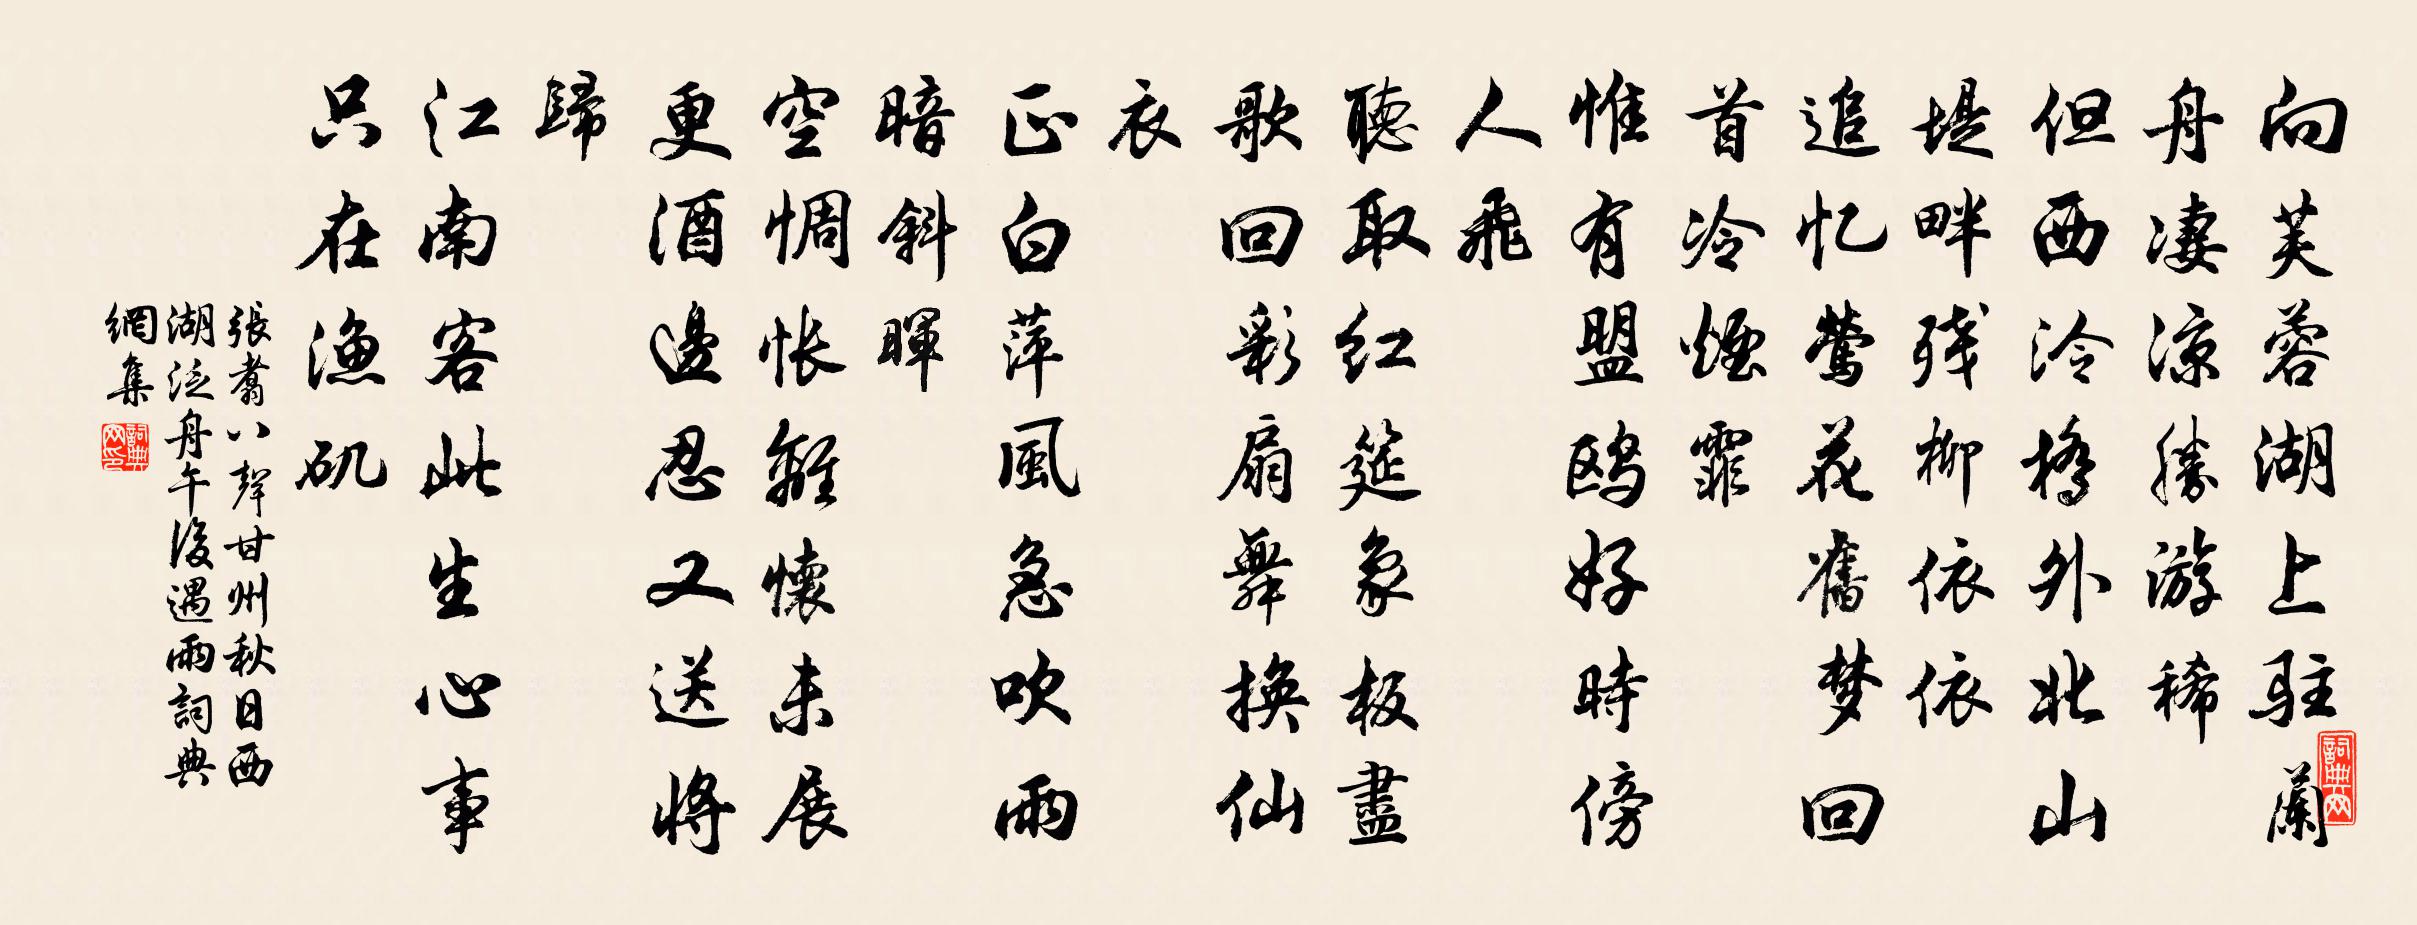 向芙蓉湖上駐蘭
舟凄涼勝游稀
但西泠橋外北山
堤畔殘柳依依
追忆鶯花舊梦回
首冷煙霏
惟有盟鸥好時傍
人飛
聽取红筵象板盡
歌回彩扇舞换仙
衣
正白萍風急吹雨
暗斜暉
空惆怅離懷未展
更酒邊忍又送将
歸
江南客此生心事
只在漁矶
張翥八聲甘州秋日西
湖泛舟午後遇雨詞典
網集
詞典网
詞典网印